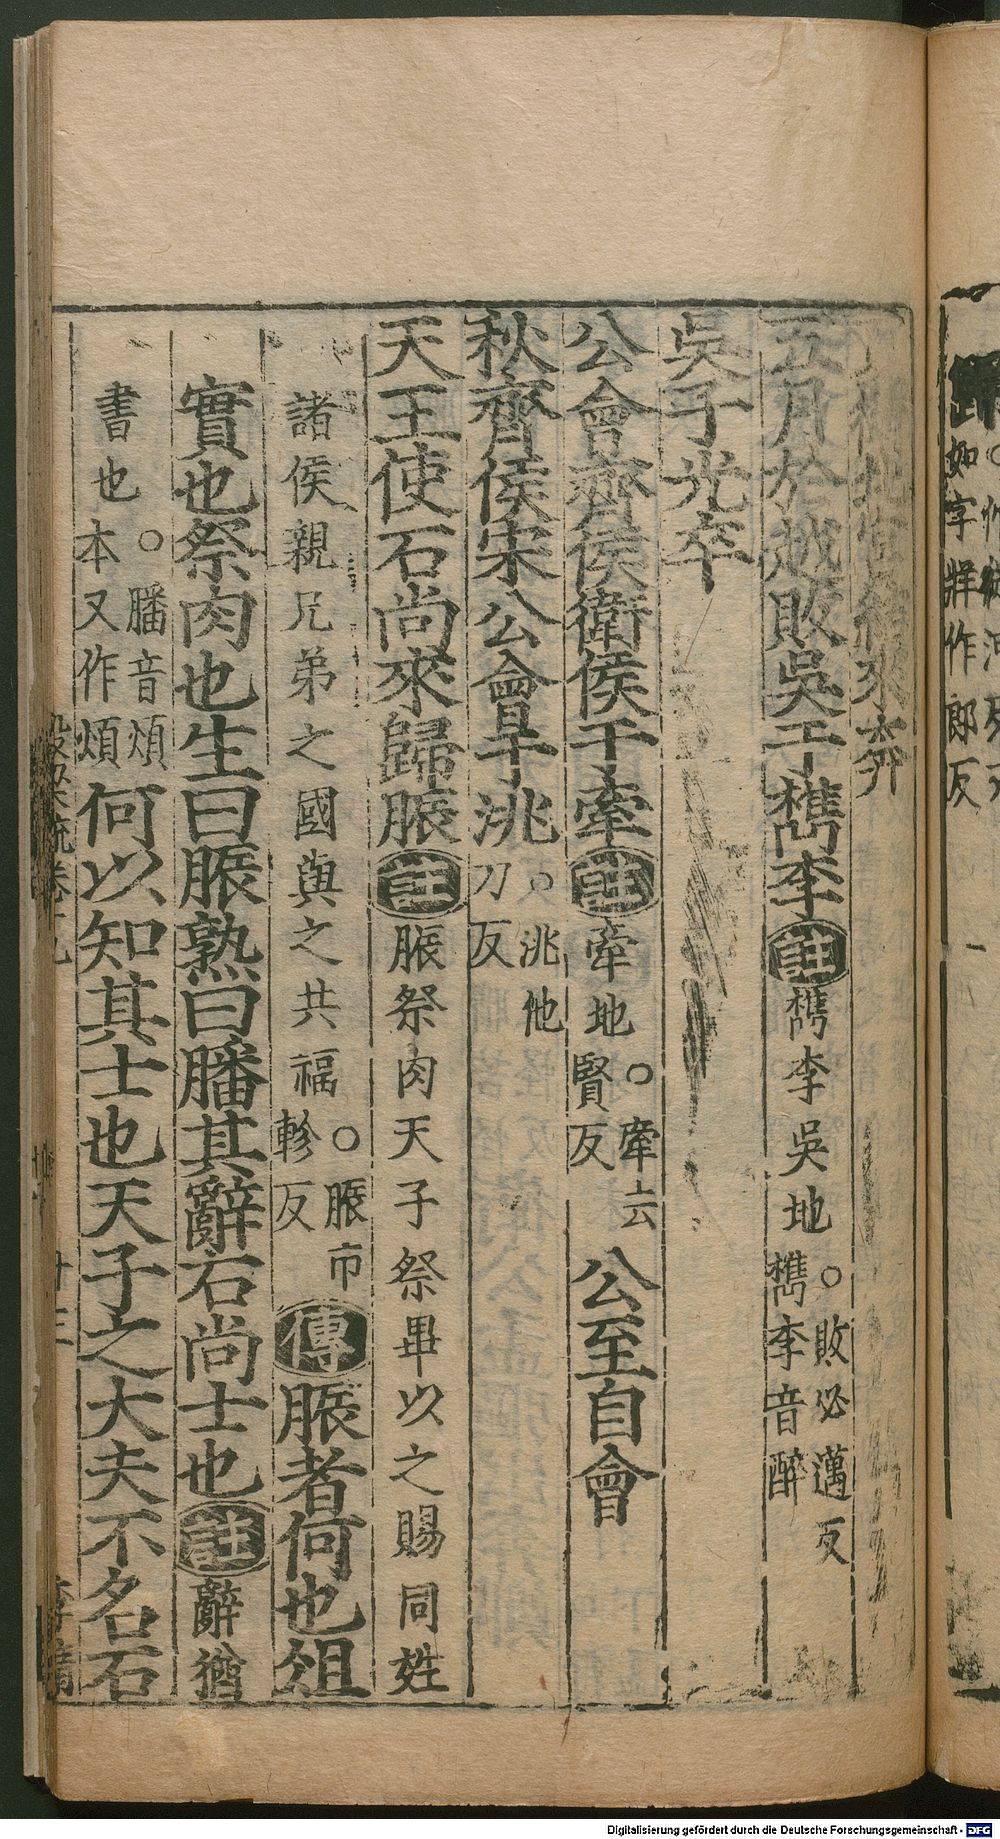 北宮結來奔
五月於越敗吳于檇李註檇李吳地○敗必邁反檇李音醉
吳子光卒
公會齊侯衛侯于牽註牽地○牽去賢反公至自會
秋齊侯宋公會于洮○洮他刀反
天王使石尚來歸脤註脤祭肉天子祭畢以之賜同姓
諸侯親兄弟之國與之共福○脤市軫反傳脤者何也俎
實也祭肉也生曰脤熟曰膰其辭石尚士也註辭猶
書也○膰音煩本又作煩何以知其士也天子之大夫不名石
如字牂作郎反
Digitalisierung gefördert durch die Deutsche Forschungsgemeinschaft - DFG